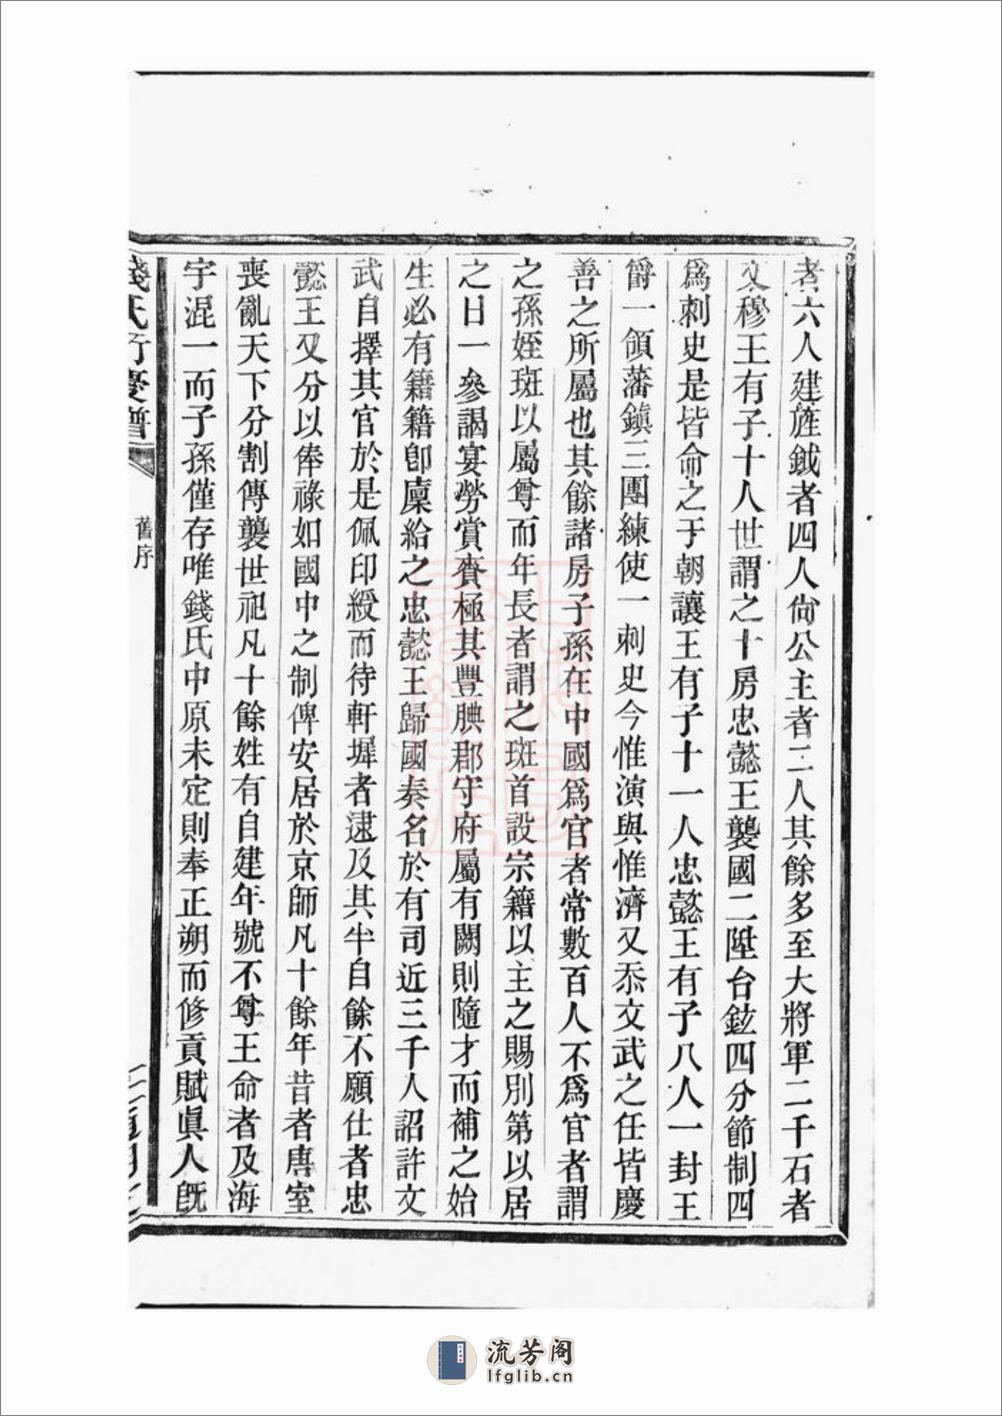 者六人建旌鉞者四人尙公主者二人其餘多至大將軍二千石者
文穆王有子十人世謂之十房忠懿王襲國二陞台鉉四分節制四
爲刺史是皆命之于朝讓王有子十一人忠懿王有子八人一封王
爵一領藩鎭三團練使一刺史今惟演與惟濟又忝文武之任皆慶
善之所屬也其餘諸房子孫在中國爲官者常數百人不爲官者謂
之孫姪斑以屬尊而年長者謂之斑首設宗籍以主之賜別第以居
之日一參謁宴勞賞賚極其豐腆郡守府屬有闕則隨才而補之始
生必有籍籍卽廩給之忠懿王歸國奏名於有司近三千人詔許文
武自擇其官於是佩印綬而待軒墀者逮及其半自餘不願仕者忠
懿王又分以俸祿如國中之制俾安居於京師凡十餘年昔者唐室
喪亂天下分割傳襲世祀凡十餘姓有自建年號不尊王命者及海
宇混一而子孫僅存唯錢氏中原未定則奉正朔而修貢賦眞人旣
錢氏行慶譜
舊序
流芳阁
lfglib.cn